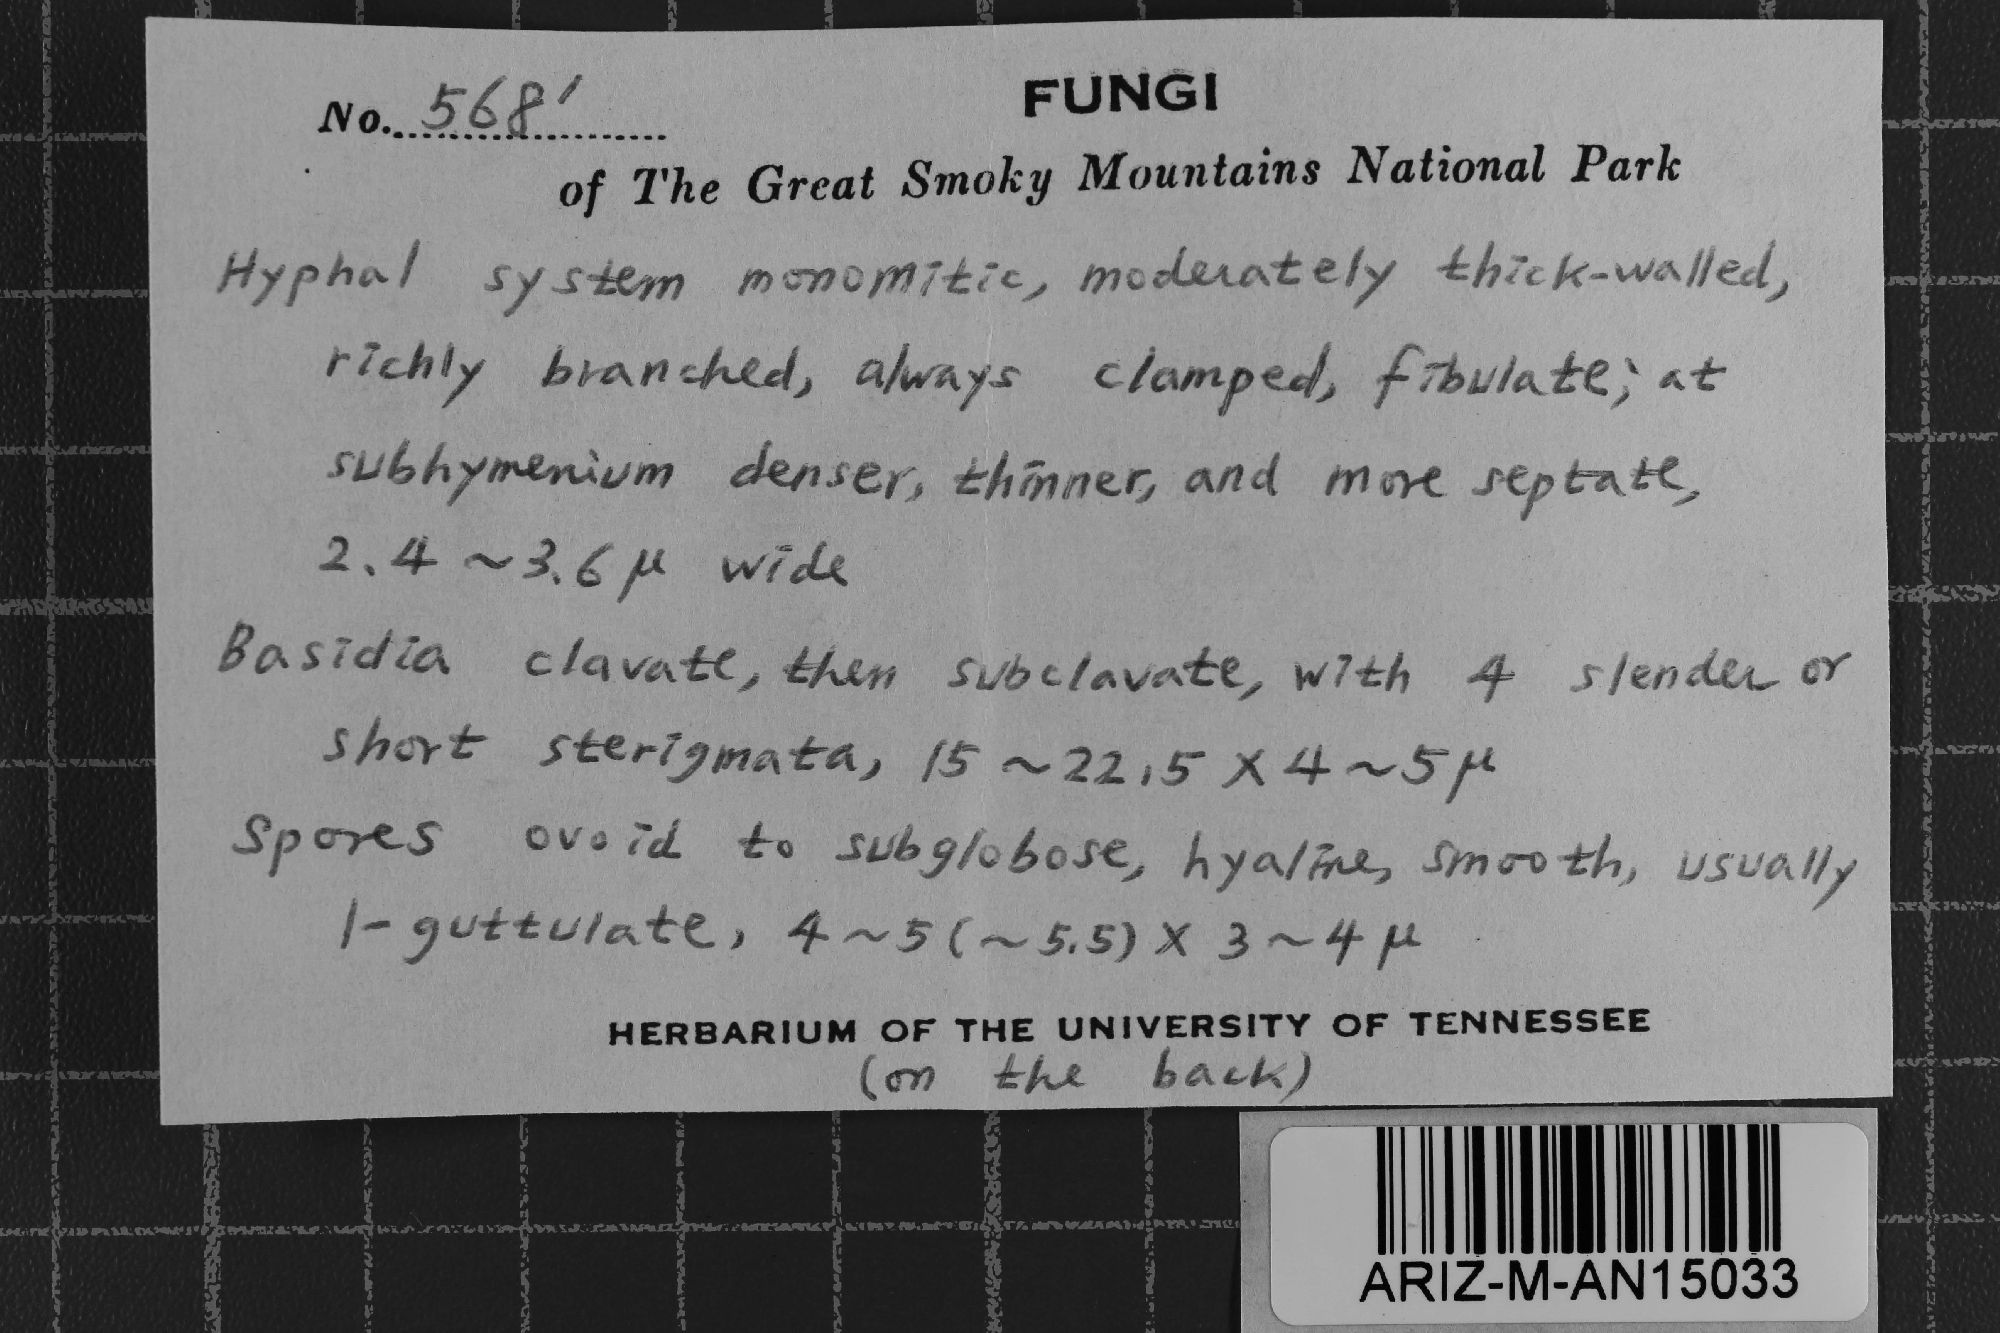 No. 568'
FUNGI
of The Great Smoky Mountains National Park
Hyphal system monomitic, moderately thick-walled,
richly branched, always clamped, fibulate; at
subhymenium denser, thinner, and more septate,
2.4 ~ 3.6 μ wide
Basidia clavate, then subclavate, with 4 slender or
short sterigmata, 15 ~ 22.5 X 4 ~ 5 μ
Spores ovoid to subglobose, hyaline, smooth, usually
1-guttulate, 4 ~ 5 (~ 5.5) X 3 ~ 4 μ
HERBARIUM OF THE UNIVERSITY OF TENNESSEE
(on the back)
ARIZ-M-AN15033